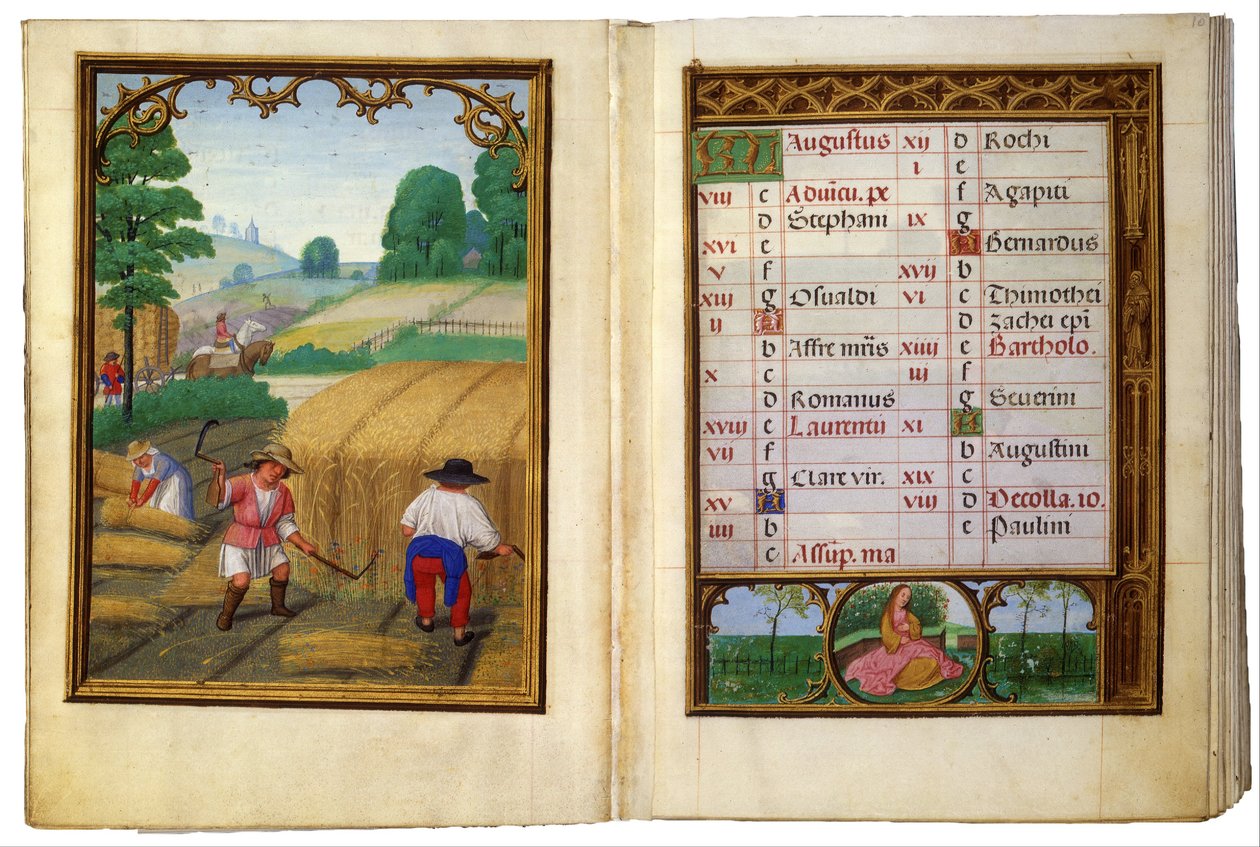 10
KL Augustus
viij c Aduīcu. pe
d Stephani
xvi e
v f
xiij g Osualdi
ij A
b Affre mr̄is
x c
d Romanus
xviij e Laurentij
vij f
g Clare vir.
xv A
iiij b
c Assūp. ma
xij d Rochi
i e
f Agapiti
ix g
A Bernardus
xvij b
vi c Thimothei
d Zachei ep̄i
xiiij e Bartholo.
iij f
g Seuerini
xi A
b Augustini
xix c
viij d Decolla. io.
e Paulini